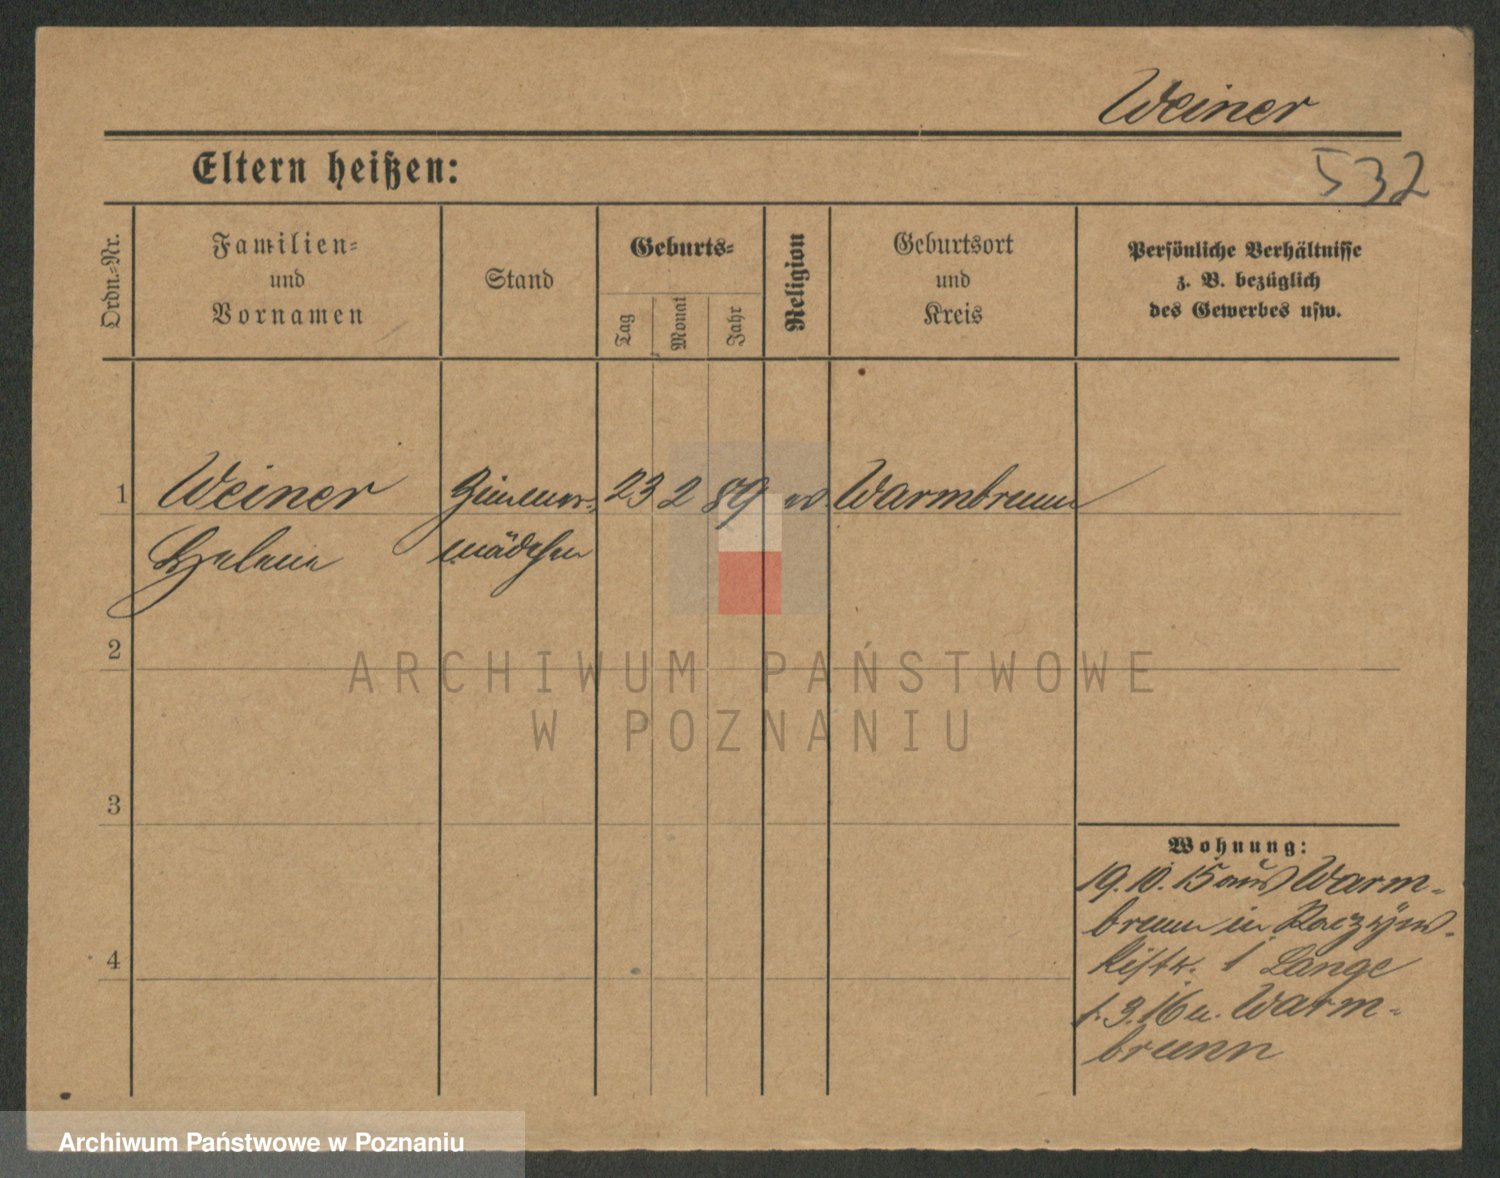 Weiner
Eltern heißen:
532
Ordn.-Nr.
Familien-
und
Vornamen
Stand
Geburts-
Tag
Monat
Jahr
Religion
Geburtsort
und
Kreis
Persönliche Verhältnisse
z. B. bezüglich
des Gewerbes usw.
1
Weiner
Zimmer-
23
2
89
Warmbrunn
Helene
mädchen
2
ARCHIWUM PAŃSTWOWE
W POZNANIU
3
4
Wohnung:
19. 10. 15 aus Warm-
brunn in Raczyns-
kistr. 1 Lange
1. 3. 16 n. Warm-
brunn
Archiwum Państwowe w Poznaniu